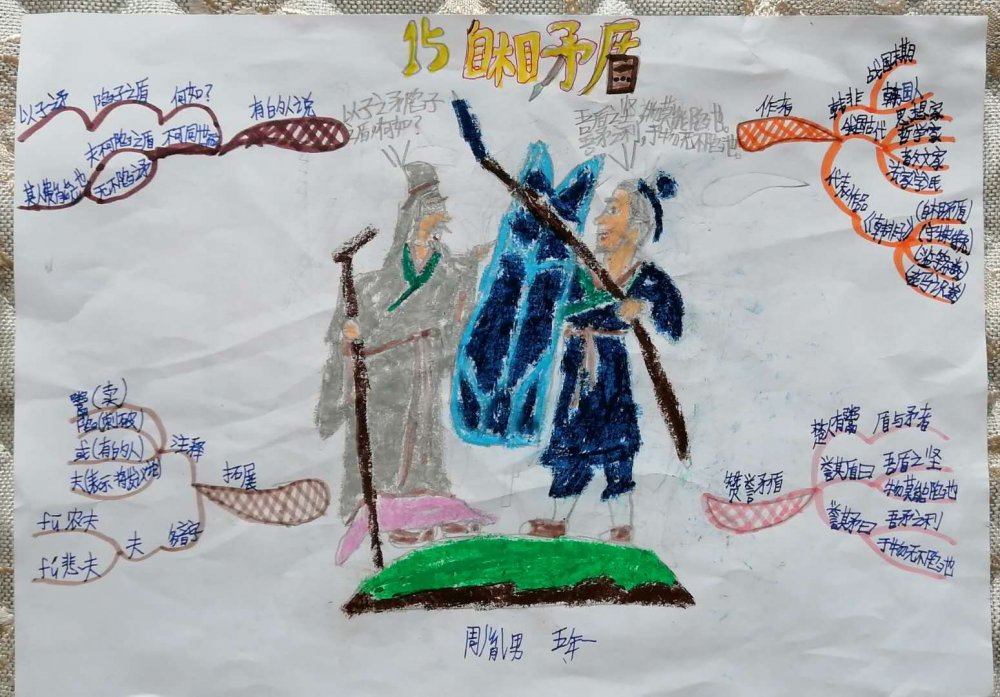 15 自相矛盾
以子之矛陷子
之盾,何如?
吾盾之坚,物莫能陷也。
吾矛之利,于物无不陷也。
有的人之说
以子之矛
陷子之盾
何如?
夫不可陷之盾
不可同世
无不陷之矛
其人弗能应也
作者
韩非
战国末期
韩国人
我国古代
思想家
哲学家
散文家
法家学氏
代表作品
《韩非子》
《自相矛盾》
拓展
注释
鬻(卖)
陷(刺破)
或(有的人)
夫(表示将发议论)
多音字
夫
fū 农夫
fú 悲夫
赞誉矛盾
楚人有鬻
盾与矛者
誉其盾曰
吾盾之坚
物莫能陷也
誉其矛曰
吾矛之利
于物无不陷也
周胤男 五年一